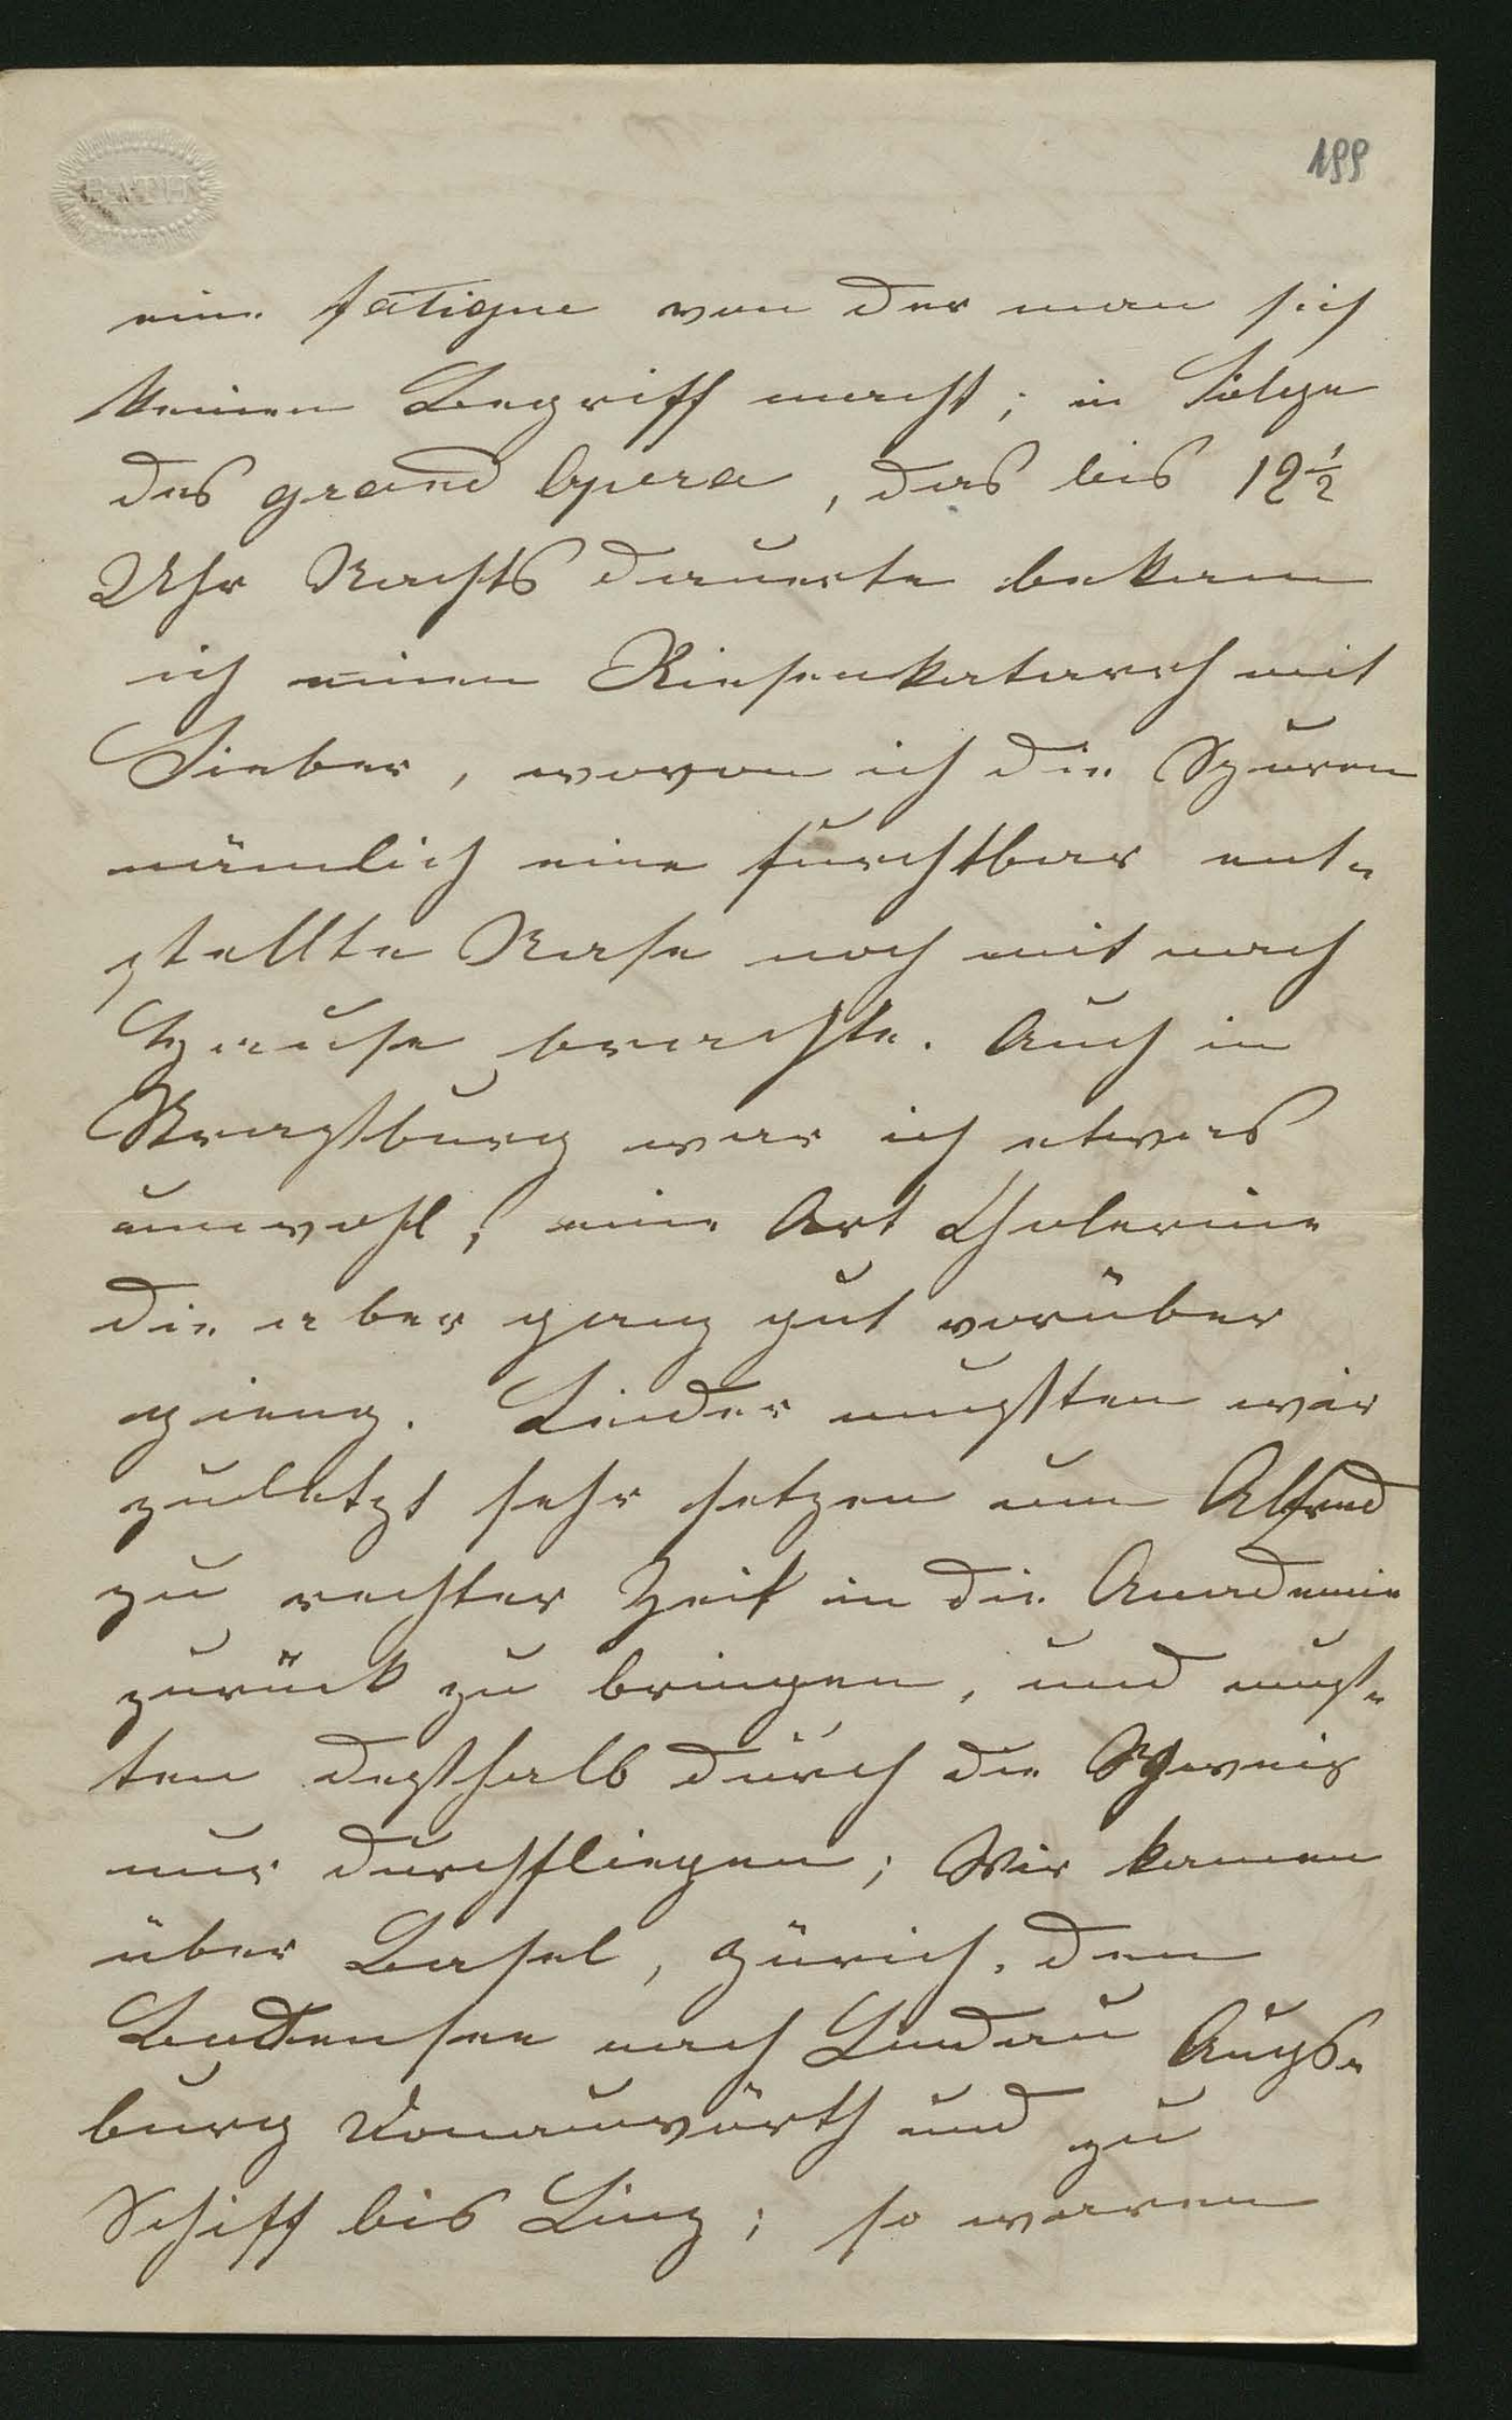 199
eine fatigue von der man sich
keinen Begriff macht; in Folge
des grand Opera, das bis 12 1/2
Uhr Nachts dauerte bekam
ich einen Riesenkatarrh mit
Fieber, wovon ich die Spuren
nämlich eine furchtbar ent-
stellte Nase noch mit nach
Hause brachte. Auch in
Straßburg war ich etwas
unwohl, eine Art Cholerine
die aber ganz gut vorüber
gieng. Leider mußten wir
zuletzt sehr hetzen um Alfred
zu rechter Zeit in die Academie
zurück zu bringen, und muß-
ten deßhalb durch die Schweiz
nur durchfliegen; Wir kamen
über Basel, Zürich, den
Bodensee nach Lindau Augs-
burg Donauwörth und zu
Schiff bis Linz; so waren